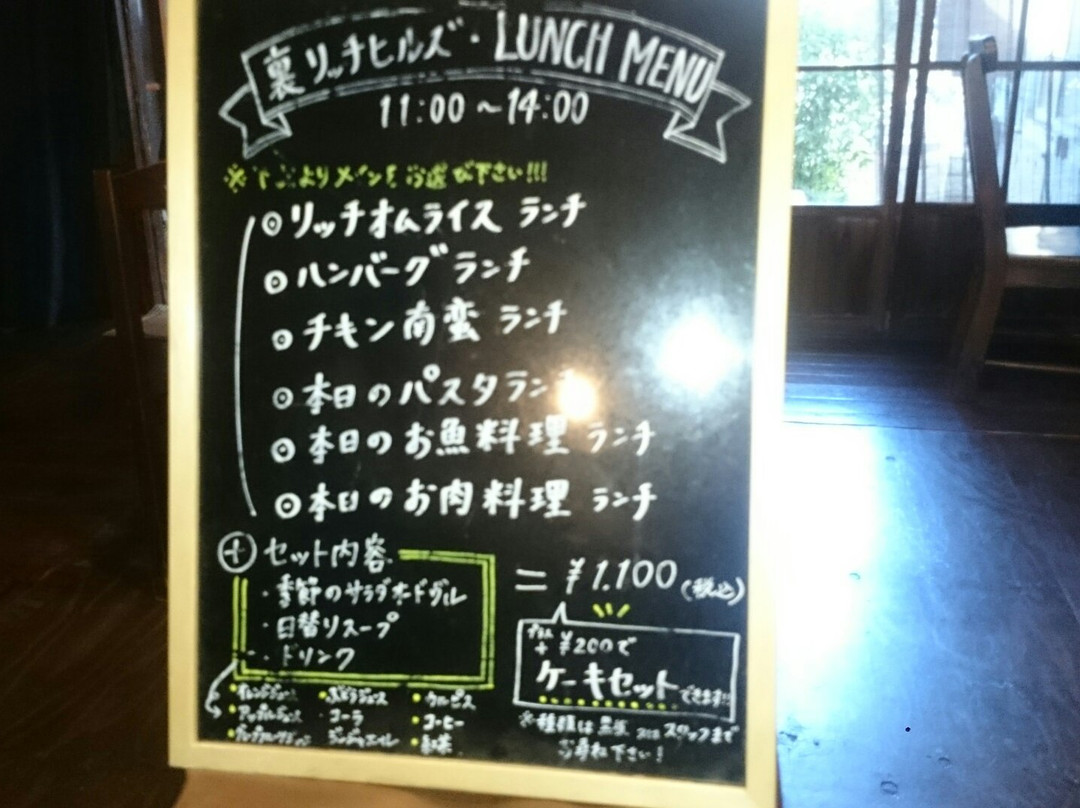 裏リッチヒルズ・LUNCH MENU
11:00〜14:00
※ よりメインをお選び下さい!!!
◎リッチオムライス ランチ
◎ハンバーグ ランチ
◎チキン南蛮 ランチ
◎本日のパスタランチ
◎本日のお魚料理 ランチ
◎本日のお肉料理 ランチ
⊕セット内容
・季節のサラダオードヴル
・日替りスープ
・ドリンク
=¥1,100(税込)
プラス
+¥200で
ケーキセットできます!!
※種類は スタッフまで
お尋ね下さい!
・オレンジジュース ・ぶどうジュース ・カルピス
・アップルジュース ・コーラ ・コーヒー
・ ・ジンジャエール ・紅茶